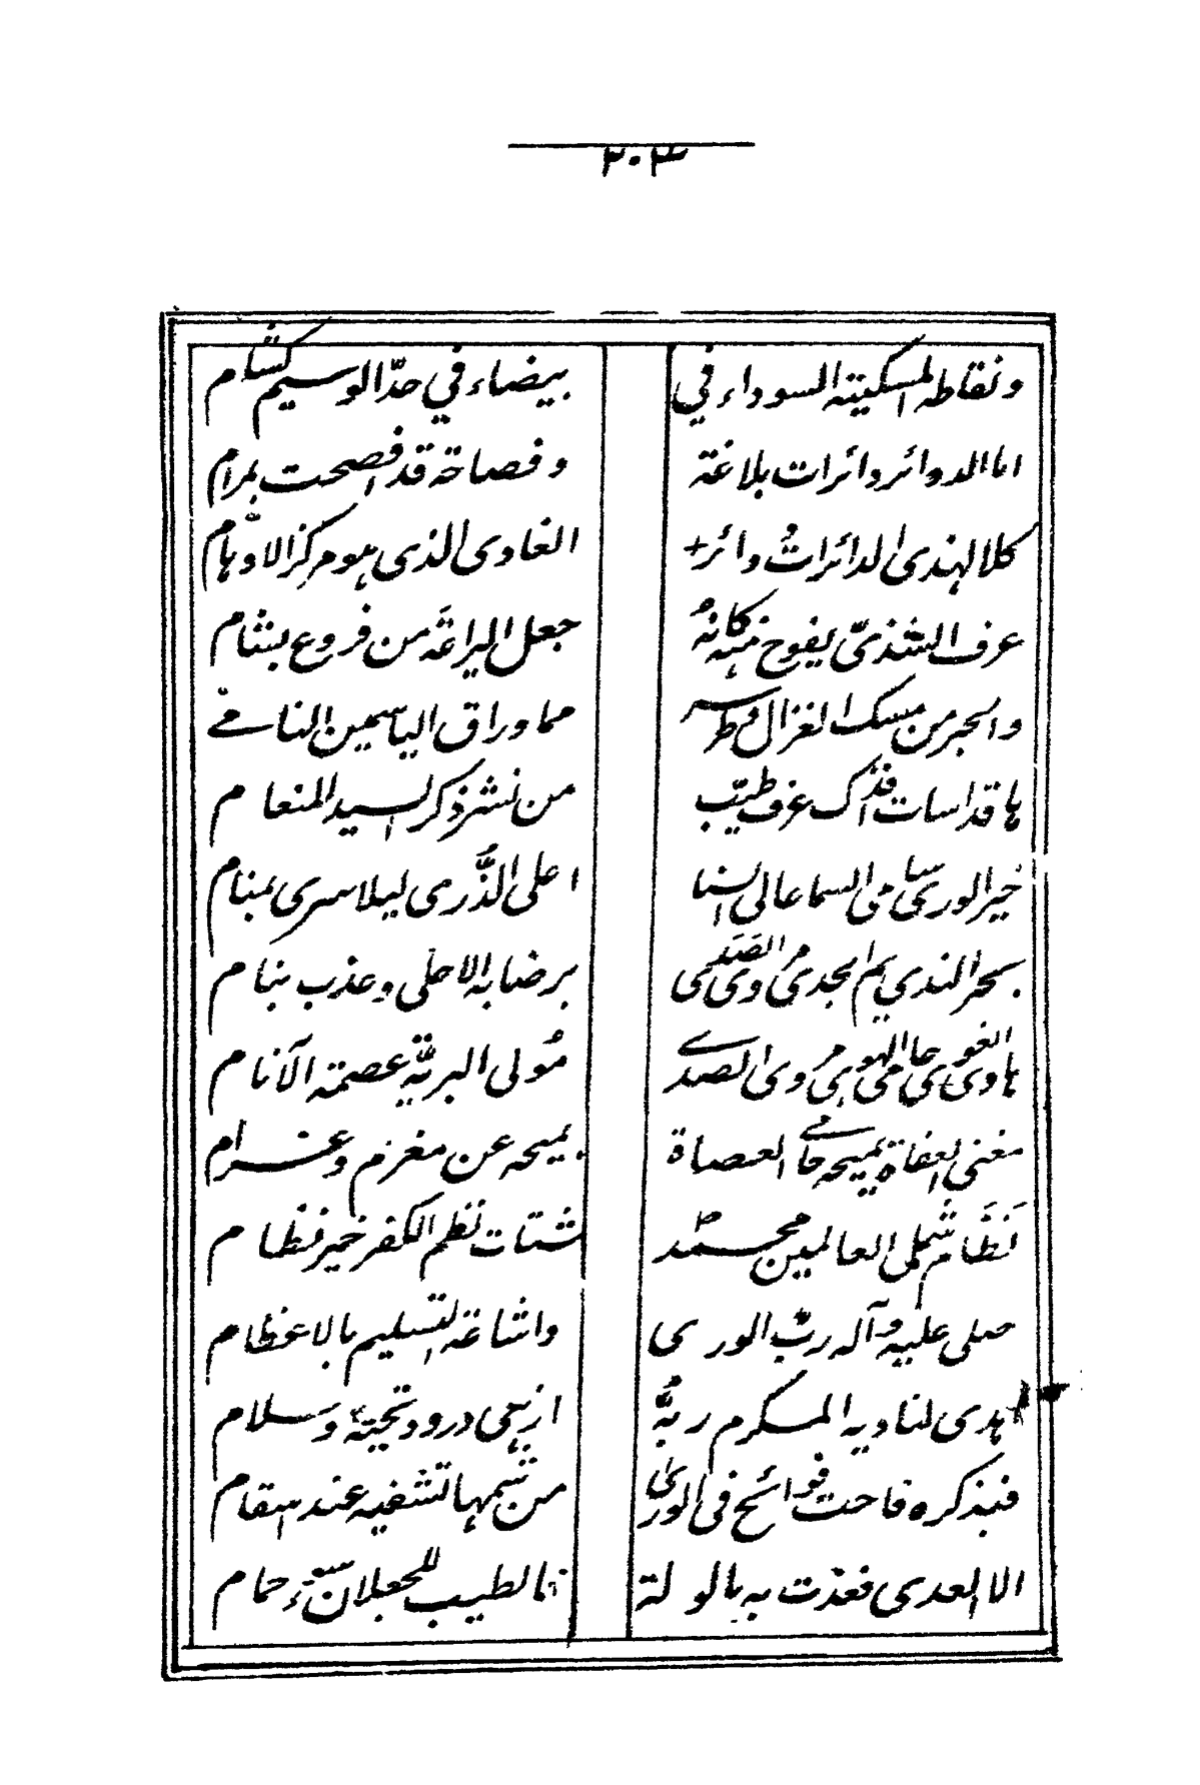 ٣٠٣
ونقاطه المسكيتة السوداء في بيضاء في خدّ الوسيم كشام
اما الدوائر دائرات بلاغة وفصاحة قد افصحت بمرام
كلا لهندى الدائراتُ دوائر الغاوى الذى هو مركز الاوهام
عرف الشذىّ يفوح منه كانهُ جعل اليراعَة من فروع بشام
والحبر من مسك الغزال مما وراق الياسمين النامى
ها قد اسات اذ ذك عرف طيّب من نشر ذكر السيد المنعام
خير الورى سامى السما عالى السنا اعلى الذُّرى ليلا سرى بمنام
بحر الندي يم الجدى مروى الصَدَى برضابه الاحلى وعذب بنام
هاوى الغوى حامى الهوى مروى الصدے مُولى البريّة عصمة الآنام
مغنى العفاة بميحه حامے العصاة بميحه عن مغرم وغرام
نَظَّام شَمل العالمين محمّد شتات نظم الكفر خير نظام
صلى عليه وآله ربّ الورى واشاعة التسليم بالاعظام
اهدى لناديه المكرم ربهُّ ازهى درود وتحيّة وسلام
فبذكره فاحت فوائح فى الورىٰ من شمها تشفيه عند سقام
الا العدى فغذت به بالولة كالطيب للجعلان سوء حمام